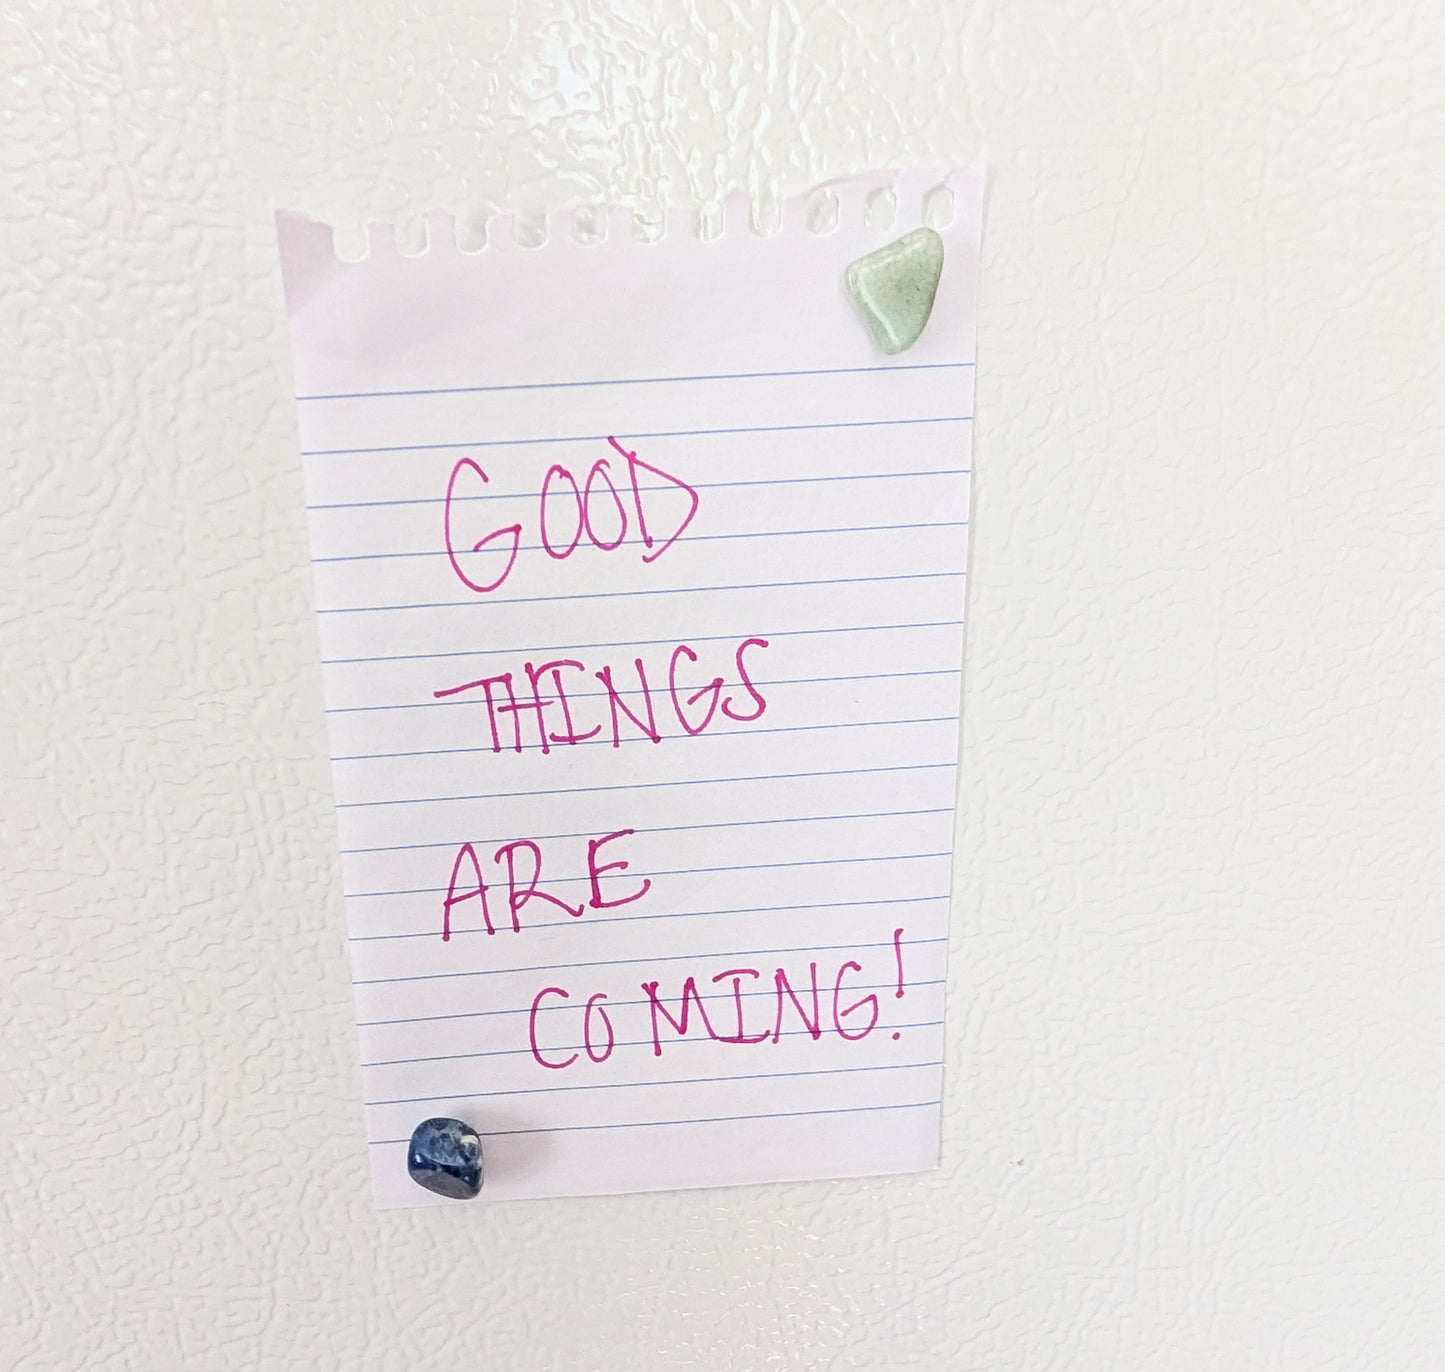 GOOD
THINGS
ARE
COMING!